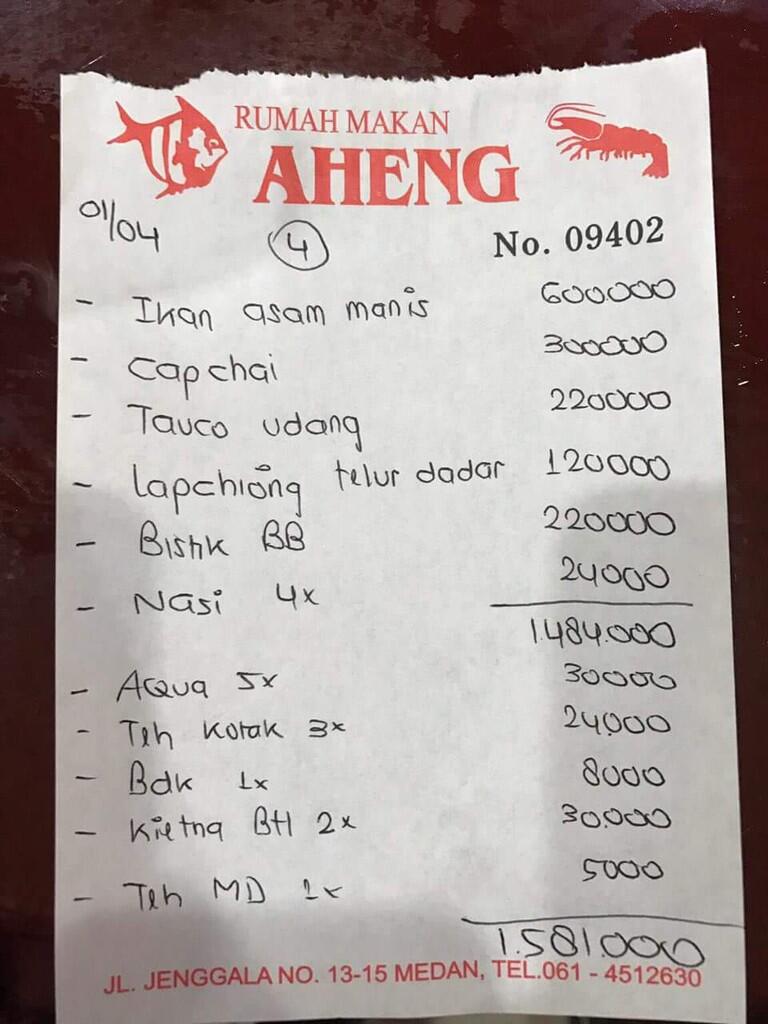 RUMAH MAKAN
AHENG
01/04 4 No. 09402
- Ikan asam manis 600000
- Capchai 300000
- Tauco udang 220000
- Lapchiong telur dadar 120000
- Bistik BB 220000
- Nasi 4x 24000
1.484.000
- Aqua 5x 30000
- Teh Kotak 3x 24.000
- Bdk 1x 8000
- Kietna Btl 2x 30.000
- Teh MD 1x 5000
1.581.000
JL. JENGGALA NO. 13-15 MEDAN, TEL.061 - 4512630